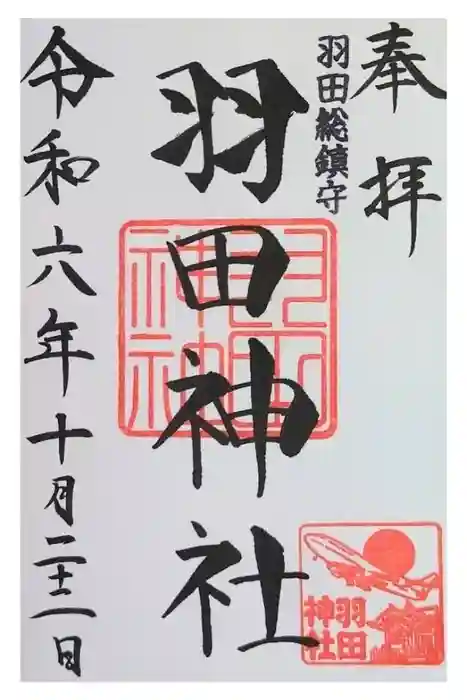 奉拝
羽田総鎮守
羽田神社
羽田
神社
令和六年十月二十二日
羽田
神社